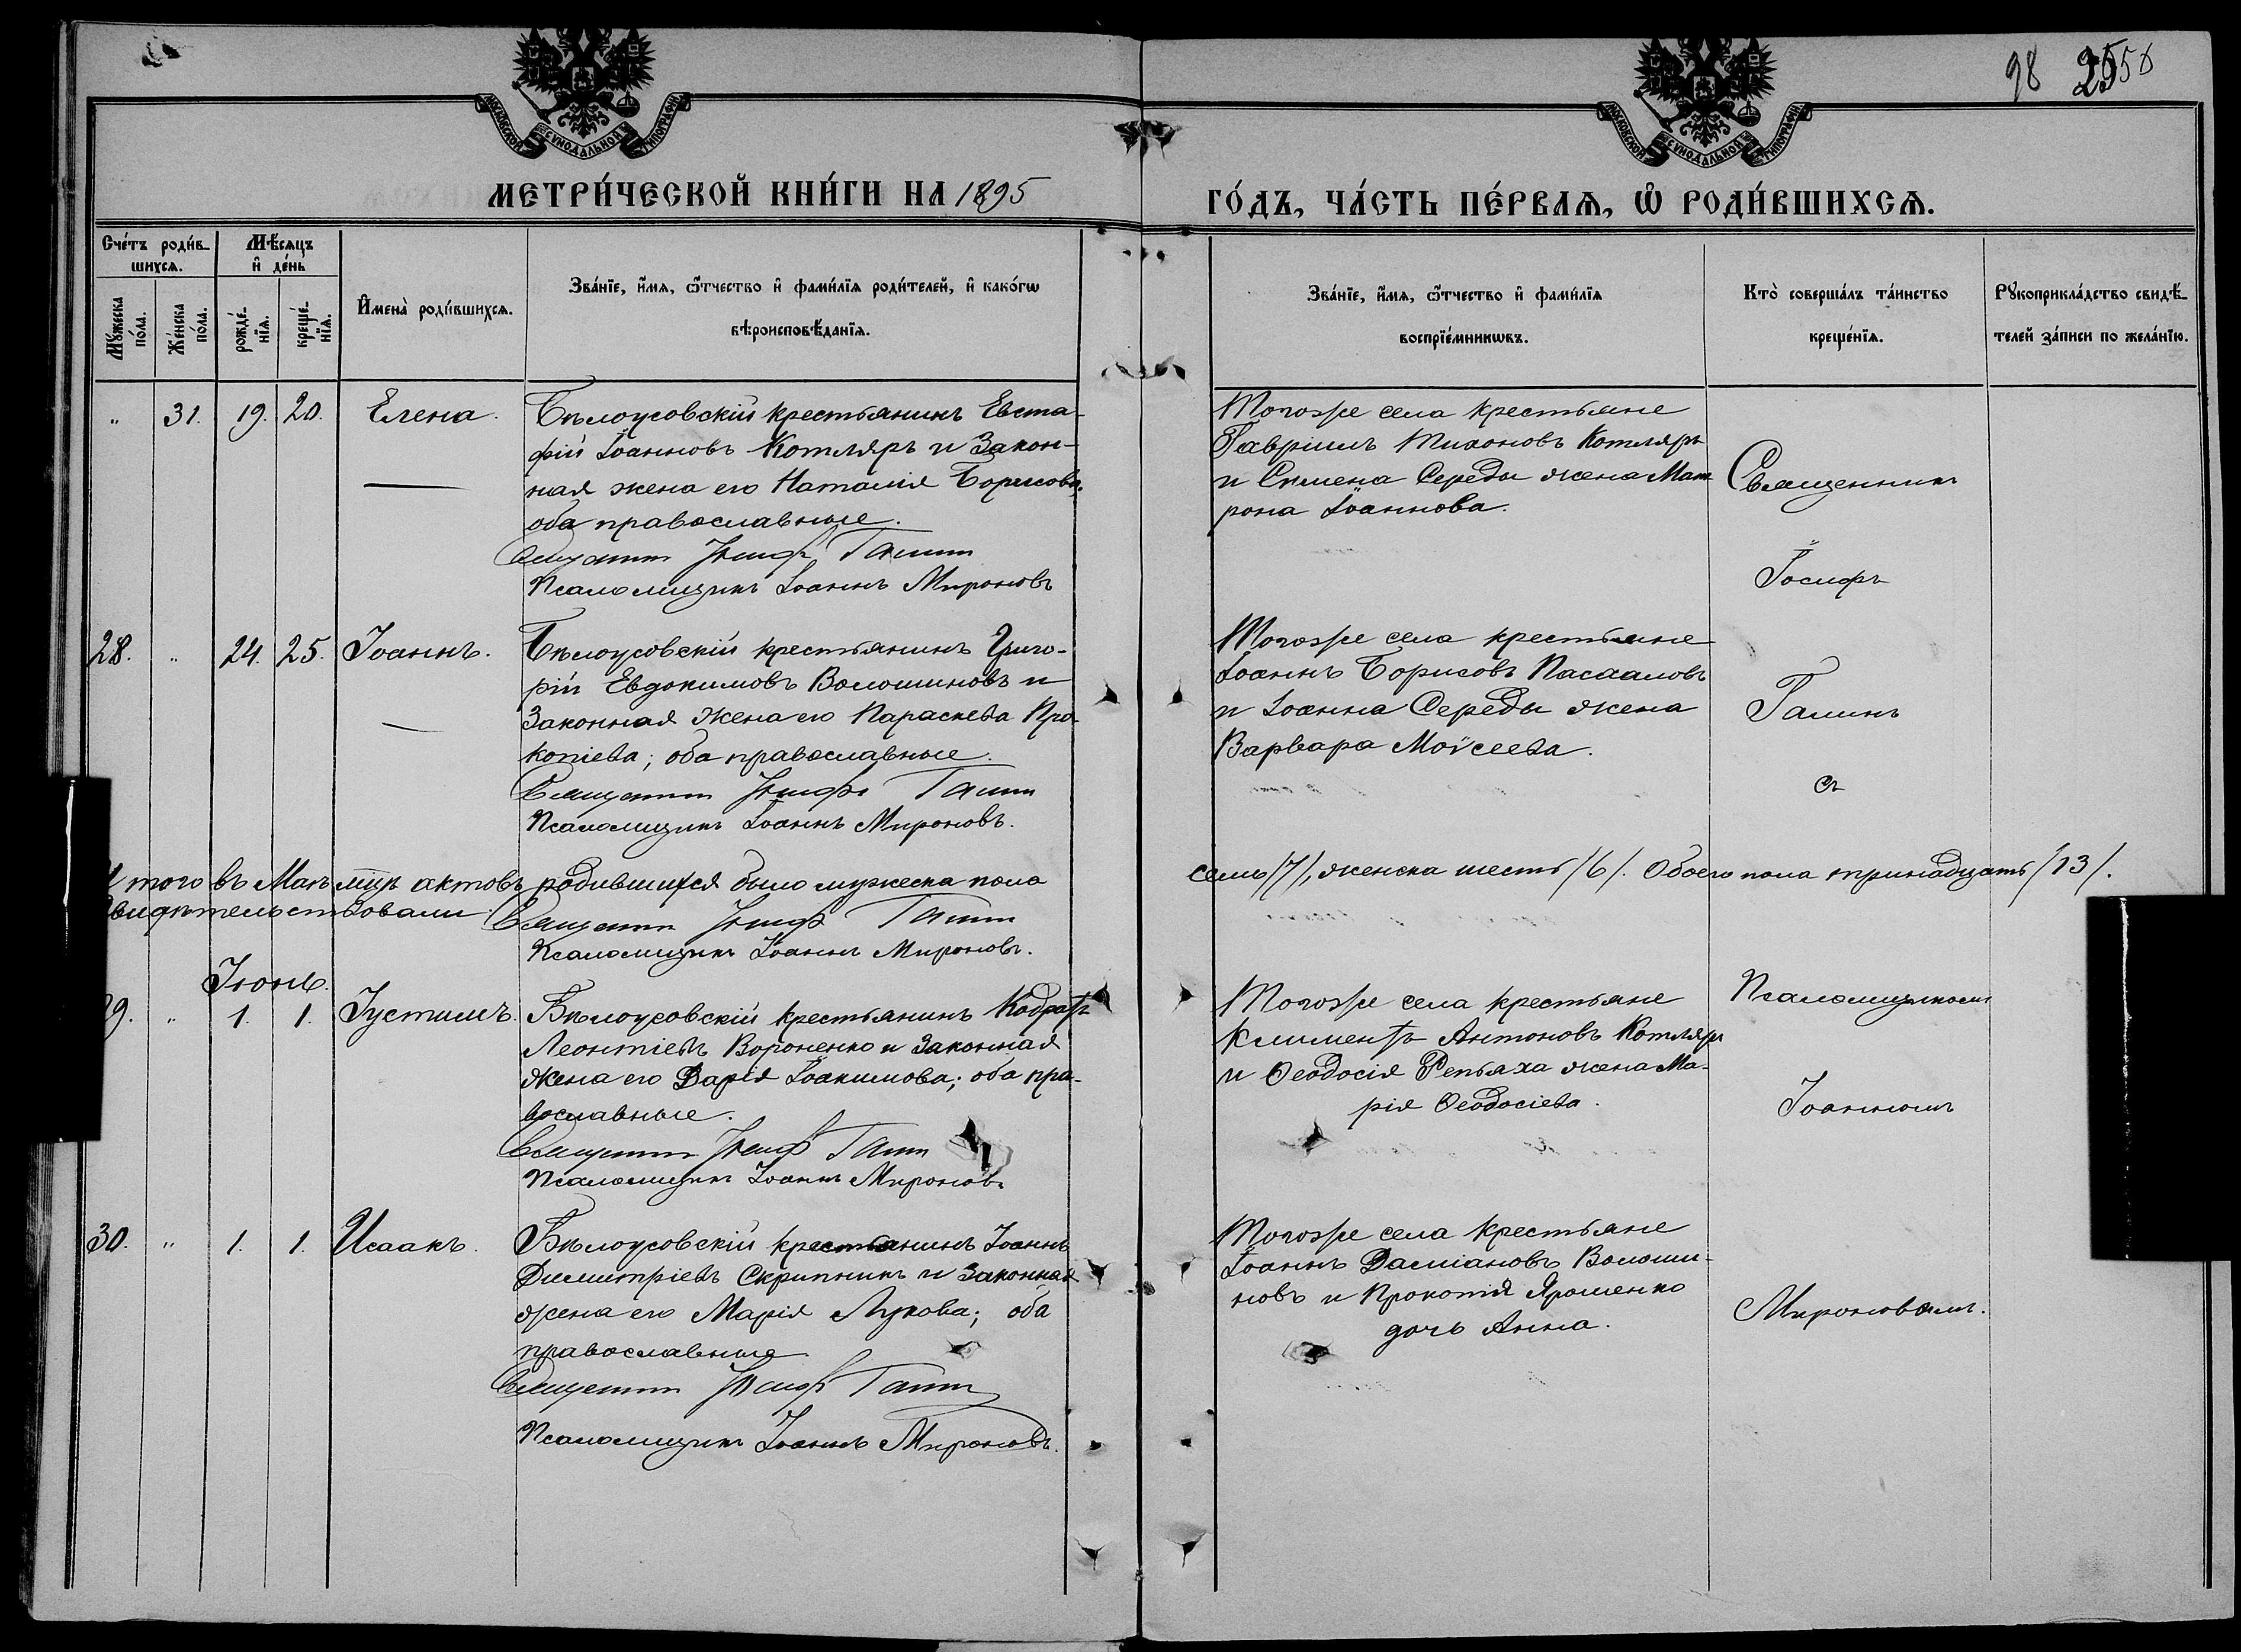 98 25 58
МОСКОВСКОЙ СѴНОДАЛЬНОЙ ТИПОГРАФІИ
МОСКОВСКОЙ СѴНОДАЛЬНОЙ ТИПОГРАФІИ
МЕТРИ́ЧЕСКОЙ КНИ́ГИ НА 1895
ГО́ДЪ, ЧА́СТЬ ПЕ́РВАѦ, Ѡ҆ РОДИ́ВШИХСѦ.
Сче́тъ роди́в-
шихсѧ.
Мѣ́сѧцъ
и҆ де́нь
Мꙋ́жеска
по́ла.
Же́нска
по́ла.
рожде́-
нїѧ.
креще́-
нїѧ.
И҆мена̀ роди́вшихсѧ.
Зва́нїе, и҆́мѧ, ѻ҆́тчество и҆ фами́лїѧ роди́телей, и҆ како́гѡ
вѣроисповѣ́данїѧ.
Зва́нїе, и҆́мѧ, ѻ҆́тчество и҆ фами́лїѧ
воспрїе́мникѡвъ.
Кто̀ соверша́лъ та́инство
креще́нїѧ.
Рꙋкоприкла́дство свидѣ́-
телей за́писи по жела́нїю.
" 31. 19. 20. Елена. Бѣлоусовскій крестьянинъ Евста-
фій Іоанновъ Котляръ и Закон-
ная жена его Наталія Борисова.
оба православные.
Священникъ Іосифъ Галинъ
Псаломщикъ Іоаннъ Мироновъ
Тогоже села крестьяне
Гавріилъ Тихоновъ Котляръ
и Симена Середы жена Мат
рона Іоаннова.
Священникъ
Іосифъ
28. " 24. 25. Іоаннъ. Бѣлоусовскій крестьянинъ Григо-
рій Евдокимовъ Волошиновъ и
Законная Жена его Параскева Про-
копіева; оба православные.
Священникъ Іосифъ Галинъ
Псаломщикъ Іоаннъ Мироновъ.
Тогоже села крестьяне
Іоаннъ Борисовъ Пасааловъ
и Іоанна Середы жена
Варвара Моѵсеева.
Галинъ
съ
И того въ Маѣ мцѣ актовъ родившихся было мужеска пола
семь /7/, женска шесть /6/. Обоего пола тринадцать /13/.
Свидѣтельствовали: Священникъ Іосифъ Галинъ
Псаломщикъ Іоаннъ Мироновъ.
Іюнь.
29. " 1. 1. Іустинъ. Бѣлоусовскій крестьянинъ Кодратъ
Леонтіевъ Вороненко и Законная
Жена его Дарія Іоакимова; оба пра-
вославные.
Священникъ Іосифъ Галинъ
Псаломщикъ Іоаннъ Мироновъ
Тогоже села крестьяне
Климентъ Антоновъ Котляръ
и Ѳеодосія Репьяха жена Ма-
рія Ѳеодосіева.
Псаломщикомъ
Іоанномъ
30. " 1. 1. Исаакъ. Бѣлоусовскій крестьянинъ Іоаннъ
Димитріевъ Скрипникъ и Законная
жена его Марія Лукова; оба
православные
Священникъ Іосифъ Галинъ
Псаломщикъ Іоаннъ Мироновъ.
Тогоже села крестьяне
Іоаннъ Даміановъ Волоши-
новъ и Прокопія Ярошенко
дочь Анна.
Мироновымъ.